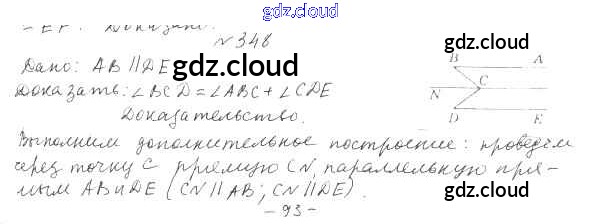 gdz.cloud
- EF. Доказано.
№348 gdz.cloud
Дано: AB∥DE gdz.cloud
Доказать: ∠BCD = ∠ABC + ∠CDE
B A
C
N
D E
Доказательство. gdz.cloud
Выполним дополнительное построение: проведём
через точку C прямую CN, параллельную пря-
мым AB и DE (CN∥AB; CN∥DE). gdz.cloud
- 93 -
gdz.cloud